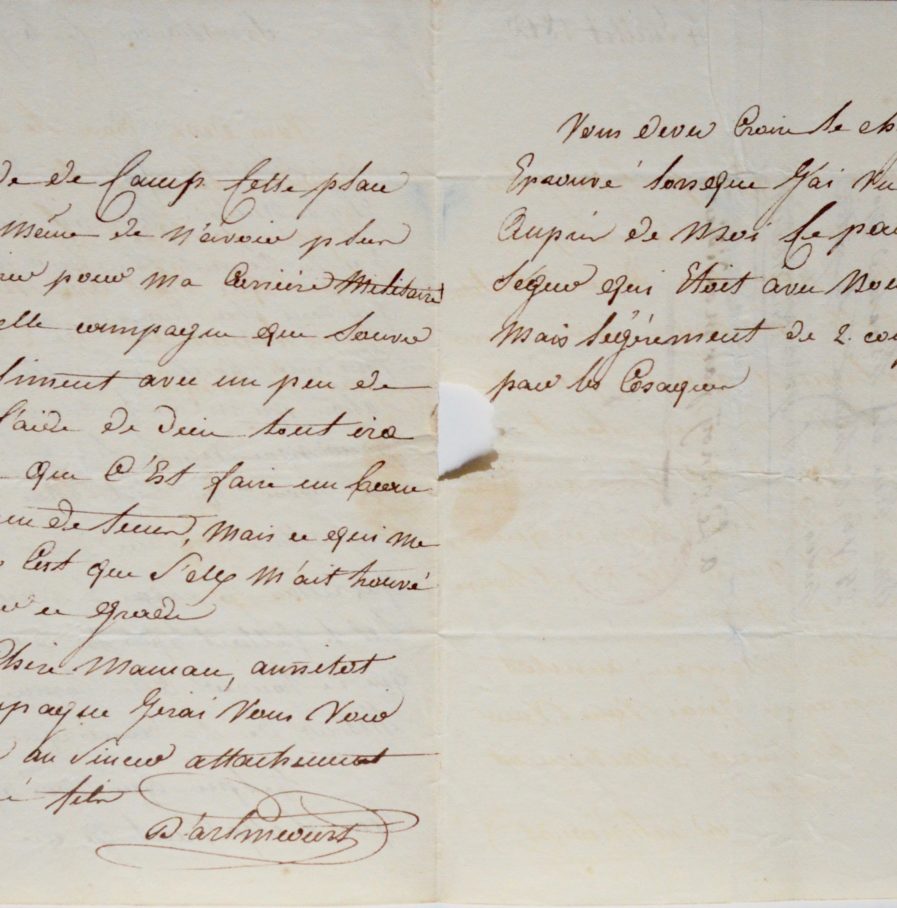 de de Camp. Cette place
même de n'avoir plus
pour ma Carrière Militaire
elle campagne que Souvre
liment avec un peu de
l'aide de dieu tout ira
que C'Est faire un beau
de teur, mais ce qui me
C'est que S'elg M'ait trouvé
ce grade
Chère Maman, aussitot
mpagne J'irai Vous Voir
au Sincer attachement
é fils
D'arlincourt
Vous devez Croire le ch
Eprouvé lorsque J'ai Vu
Auprès de Moi le pau
Segur qui Etoit avec Nou
Mais légérement de 2. cou
par les Cosaques